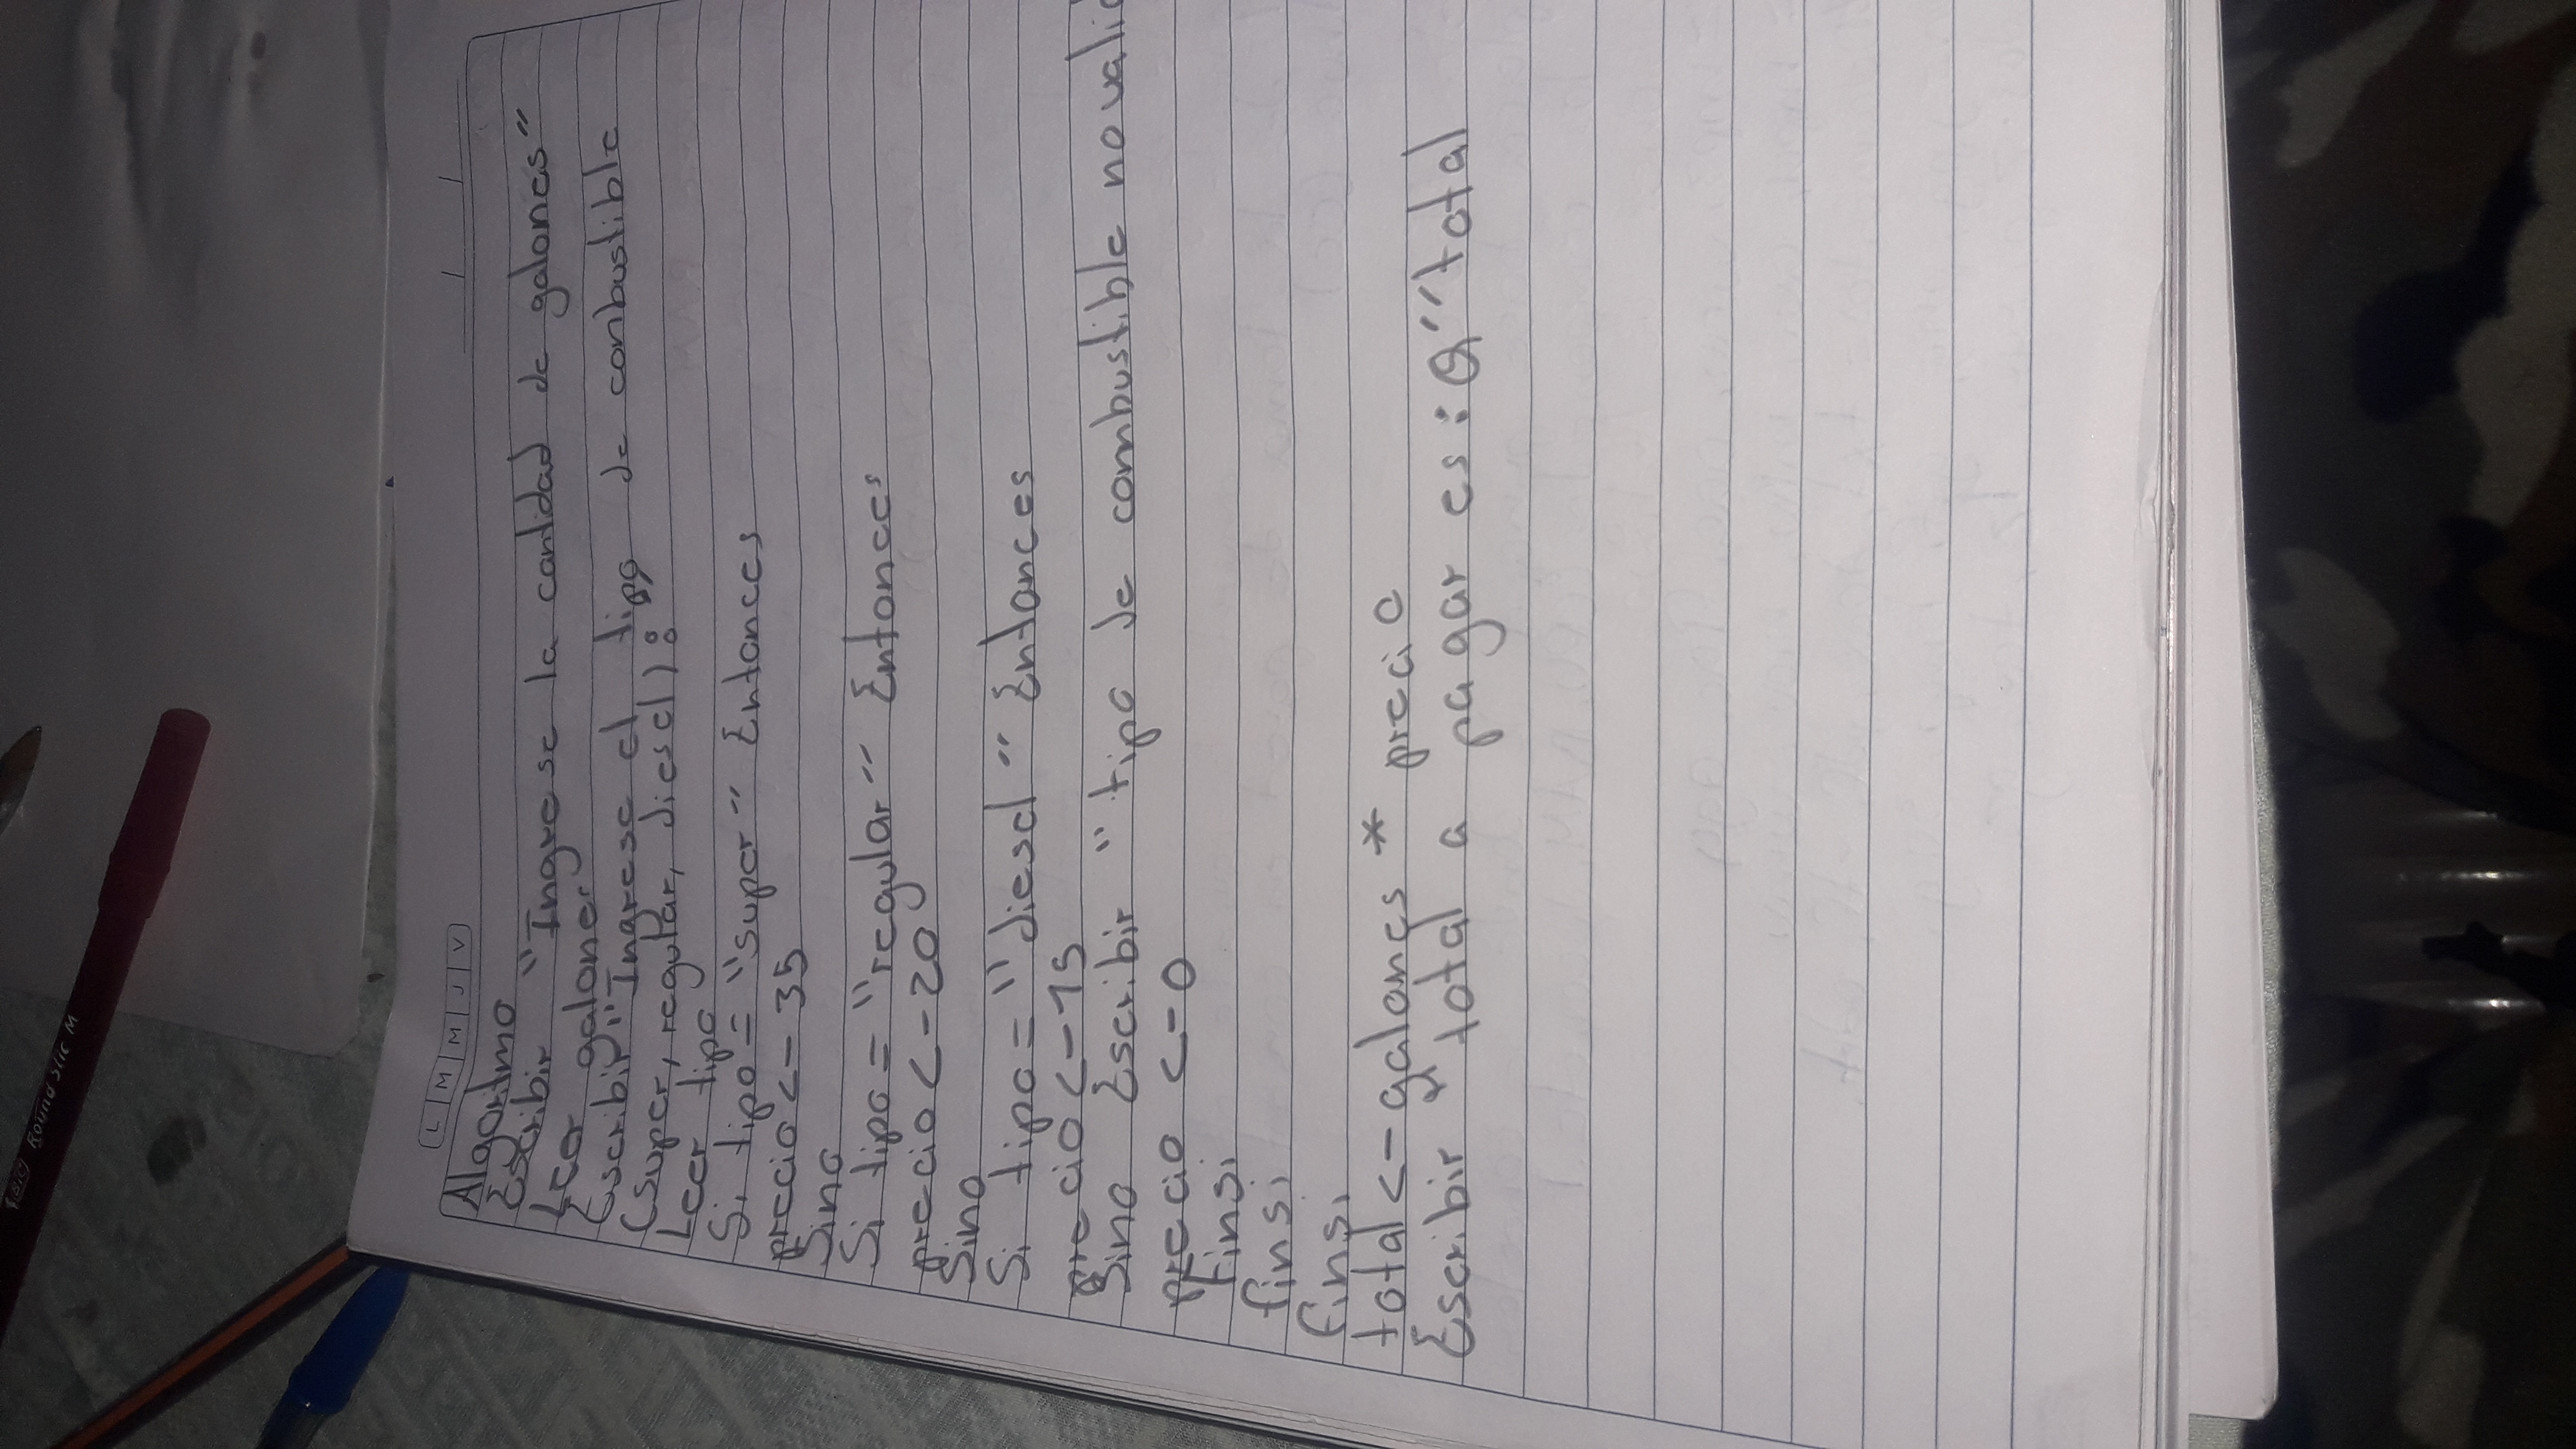 L M M J V
Algoritmo
Escribir "Ingrese la cantidad de galones"
Leer galones
Escribir "Ingrese el tipo de conbustible
(super, regular, diesel):
Leer tipo
Si tipo = "super" Entonces
precio <- 35
Sino
Si tipo = "regular" Entonces
precio <- 20
Sino
Si tipo = "diesel" Entonces
precio <- 15
Sino Escribir "tipo de combustible no valid
precio <- 0
Finsi
finsi
finsi
total <- galones * precio
Escribir "total a pagar es: Q" total
Round stic M